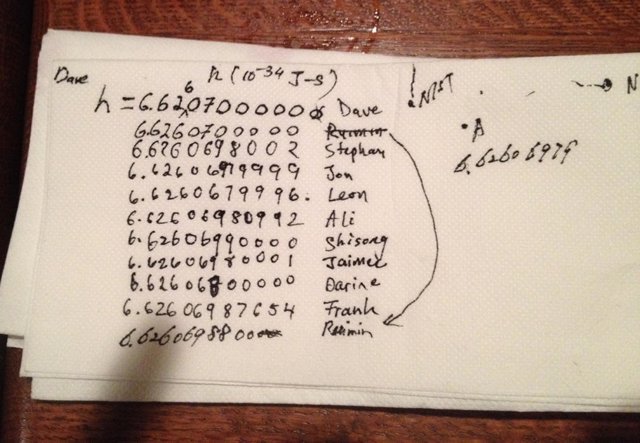 Dave
h (10^-34 J-s)
h = 6.62^6070000000 Dave
6.62607000000 Ruimin
6.6260698002 Stephan
6.62606979999 Jon
6.6260679996. Leon
6.62606980992 Ali
6.62606990000 Shisong
6.62606980001 Jaimie
6.62606800000 Darine
6.62606987654 Frank
6.626069880000 Ruimin
NIST
N
A
6.62606979